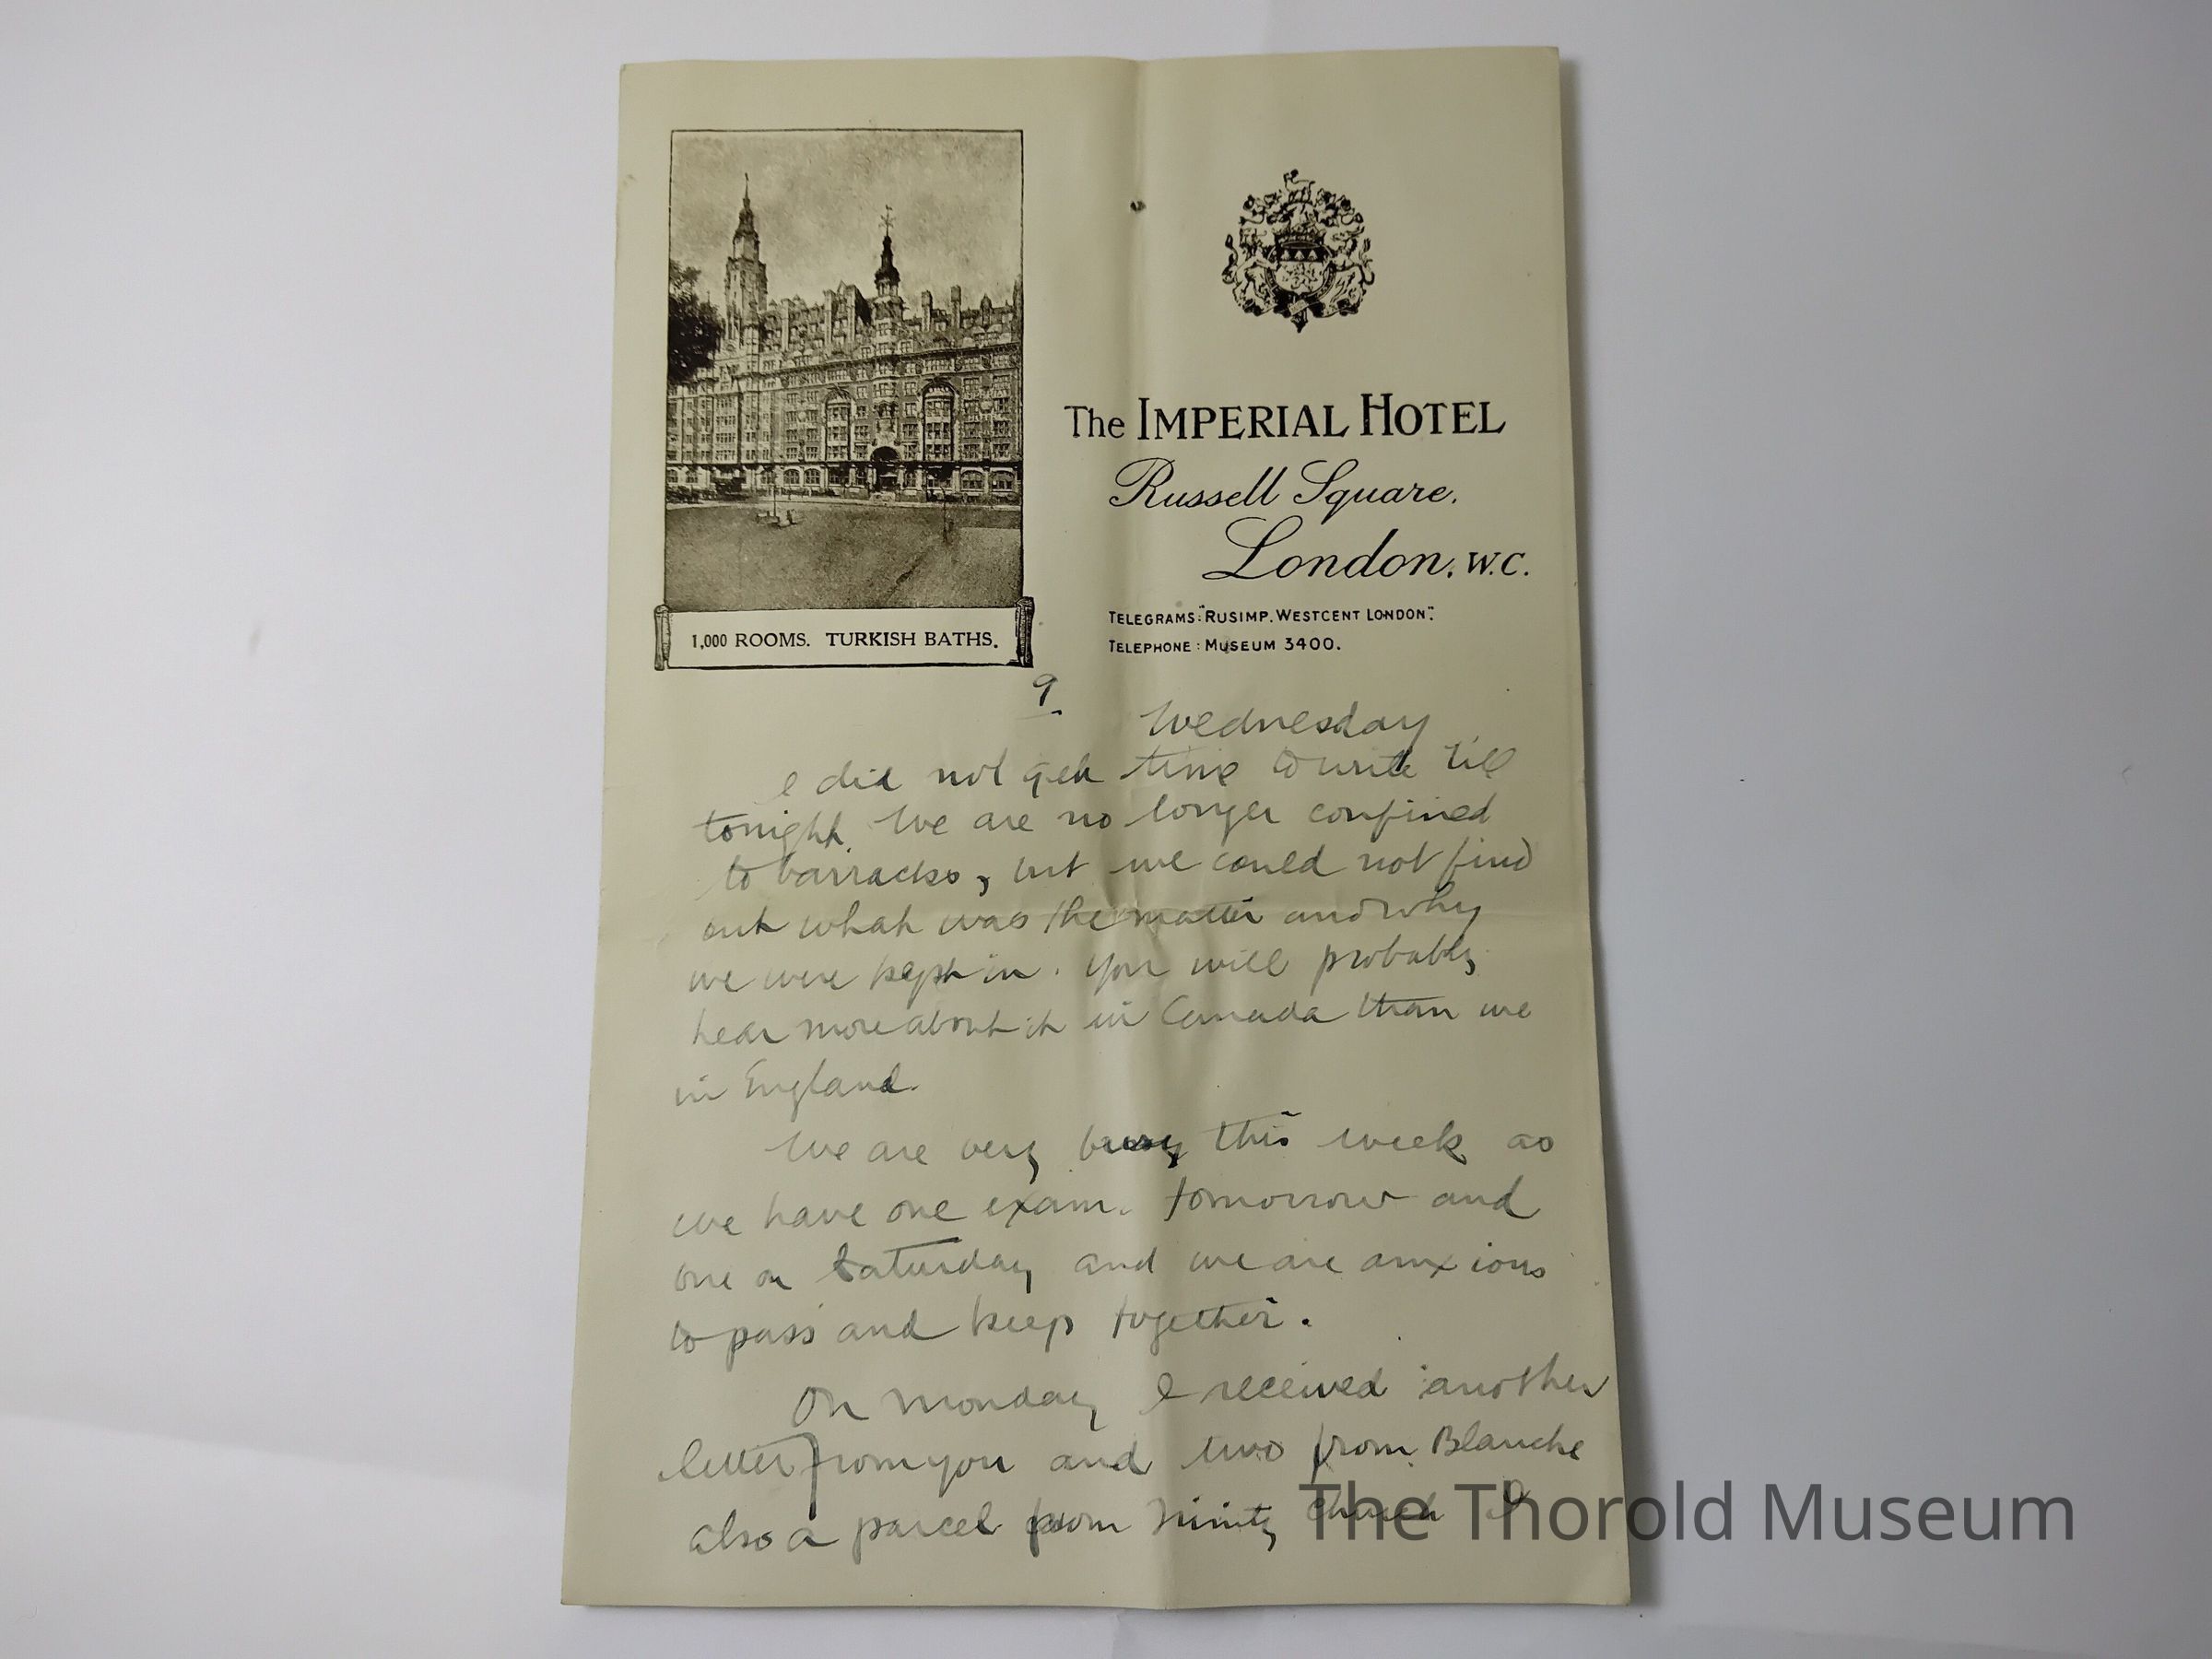 The IMPERIAL HOTEL
Russell Square.
London. W.C.
TELEGRAMS: "RUSIMP. WESTCENT LONDON".
TELEPHONE: MUSEUM 3400.
1,000 ROOMS. TURKISH BATHS.
9.
Wednesday
I did not get time to write till
tonight. We are no longer confined
to barracks, but we could not find
out what was the matter and why
we were kept in. You will probably
hear more about it in Canada than we
in England.
We are very busy this week as
we have one exam. tomorrow and
one on Saturday and we are anxious
to pass and keep together.
On Monday I received another
letter from you and two from Blanche
also a parcel from Trinity Church I
The Thorold Museum